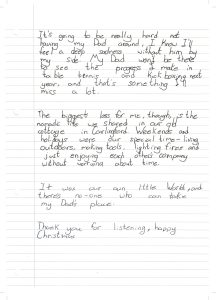 It's going to be really hard not
having my Dad around, I know I'll
feel a deep sadness without him by
my side. My Dad won't be there
to see the progress I make in
table tennis and Kick boxing next
year, and that's something I'll
miss a lot.
The biggest loss for me, though, is the
nomadic life we shared in our old
cottage in Carlingford. Weekends and
holidays were our special time - living
outdoors, making tools, lighting fires and
just enjoying each others company
without worrying about time.
It was our own little world and
there's no-one who can take
my Dad's place.
Thank you for listening, happy
Christmas